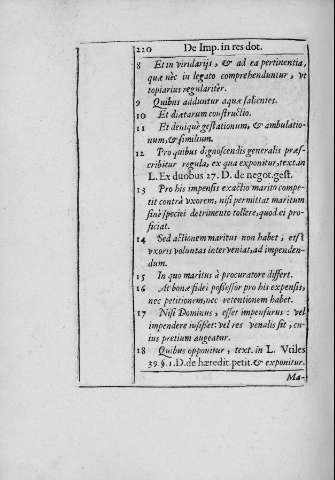 220 De Imp. in res dot.
8 Et in viridarijs, & ad ea pertinentia,
quæ nèc in legato comprehenduntur, vt
topiarius regularitèr.
9 Quibus adduntur aquæ salientes.
10 Et diætarum constructio.
11 Et deniquè gestationum, & ambulatio-
num, & similium.
12 Pro quibus dignoscendis generalis præs-
cribitur regula, ex qua exponitur, text. in
L. Ex duobus 27. D. de negot. gest.
13 Pro his impensis exactio marito compe-
tit contrà vxorem, nisi permittat maritum
sinè speciei detrimento tollere, quod ei pro-
ficiat.
14 Sed actionem maritus non habet, etsi
vxoris voluntas interveniat, ad impenden-
dum.
15 In quo maritus à procuratore differt.
16 At bonæ fidei possessor pro his expensis,
nec petitionem, nec retentionem habet.
17 Nisi Dominus, esset impensurus: vel
impendere iussisset: vel res venalis sit, cu-
ius pretium augeatur.
18 Quibus opponitur, text. in L. Vtiles
39. §. 1. D. de hæredit. petit. & exponitur.
Ma-